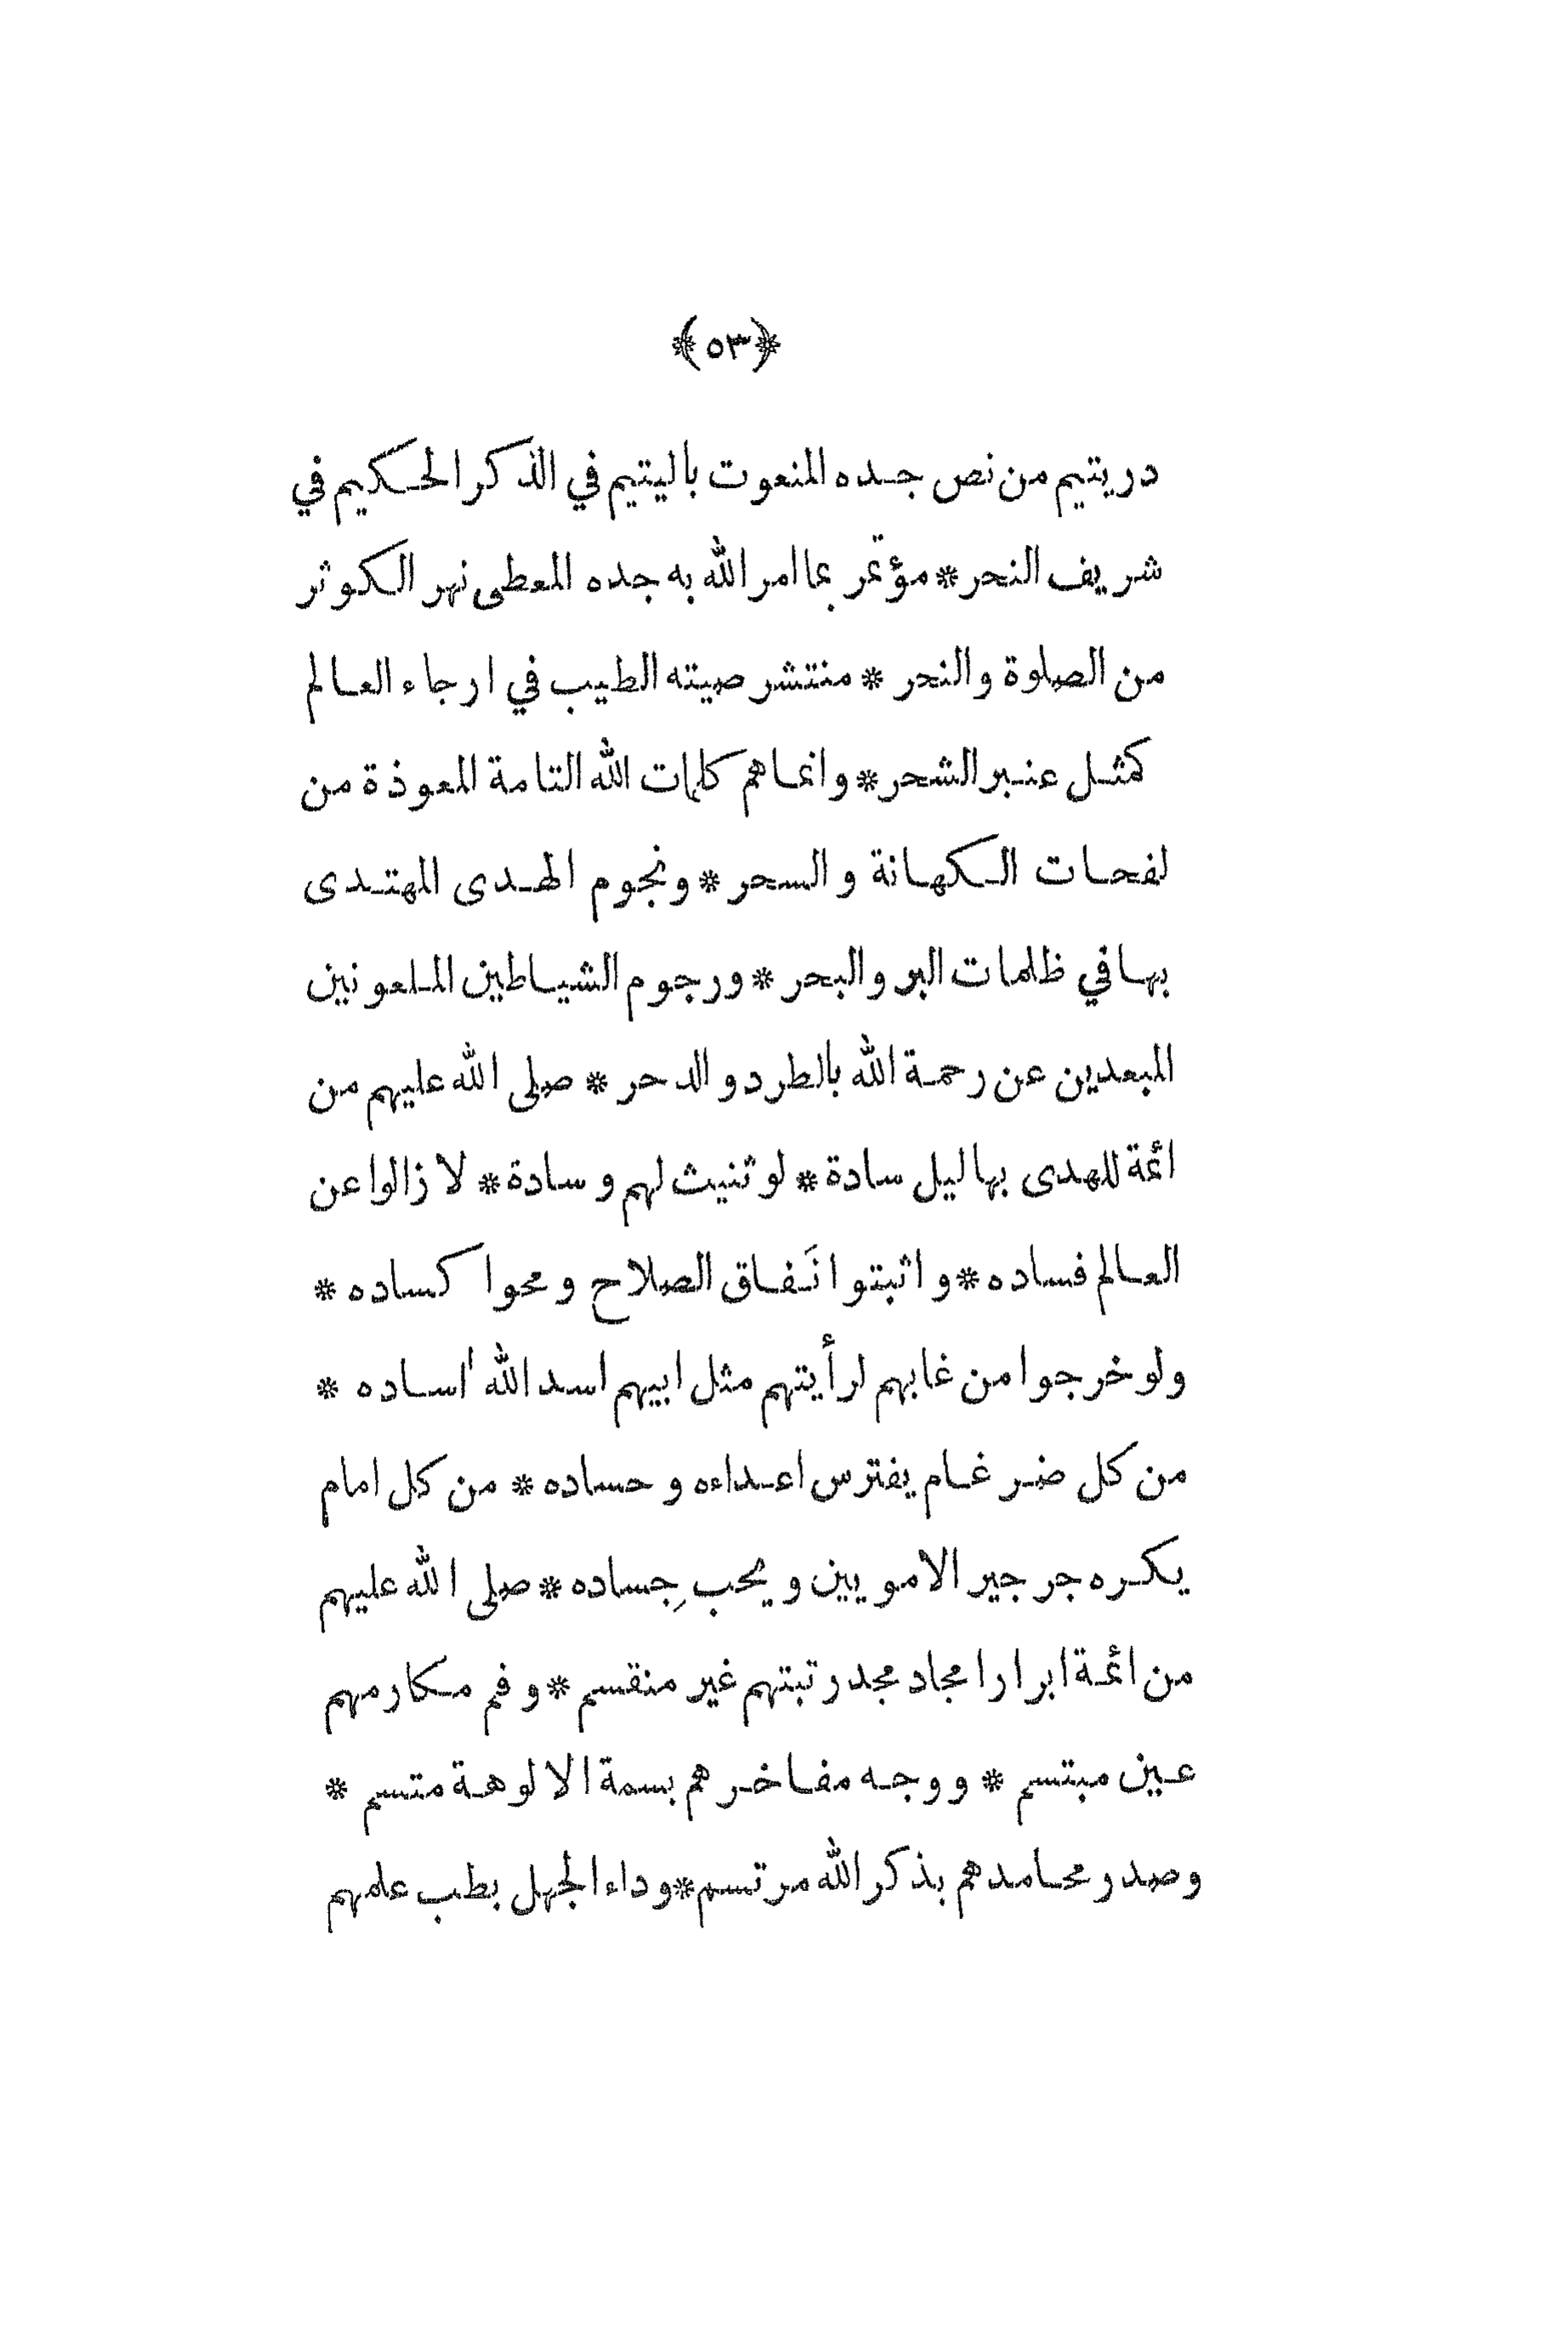 ﴿٥٣﴾
در يتيم من نص جده المنعوت باليتيم في الذكر الحكيم في
شريف النحر * مؤتمر بما امر الله به جده المعطى نهر الكوثر
من الصلوة والنحر * منتشر صيته الطيب في ارجاء العالم
كمثل عنبر الشحر * وانما هم كلمات الله التامة المعوذة من
لفحات الكهانة والسحر * ونجوم الهدى المهتدى
بها في ظلمات البر والبحر * ورجوم الشياطين الملعونين
المبعدين عن رحمة الله بالطرد والدحر * صلى الله عليهم من
ائمة للهدى بهاليل سادة * لو ثنيت لهم وسادة * لازالوا عن
العالم فساده * واثبتوا نَفاق الصلاح ومحوا كساده *
ولو خرجوا من غابهم لرأيتهم مثل ابيهم اسد الله اٰساده *
من كل ضرغام يفترس اعداءه وحساده * من كل امام
يكره جرجير الامويين ويحب جِساده * صلى الله عليهم
من ائمة ابرار امجاد مجد رتبتهم غير منقسم * وفم مكارمهم
عين مبتسم * ووجه مفاخرهم بسمة الالوهة متسم *
وصدر محامدهم بذكر الله مرتسم * وداء الجهل بطب علمهم